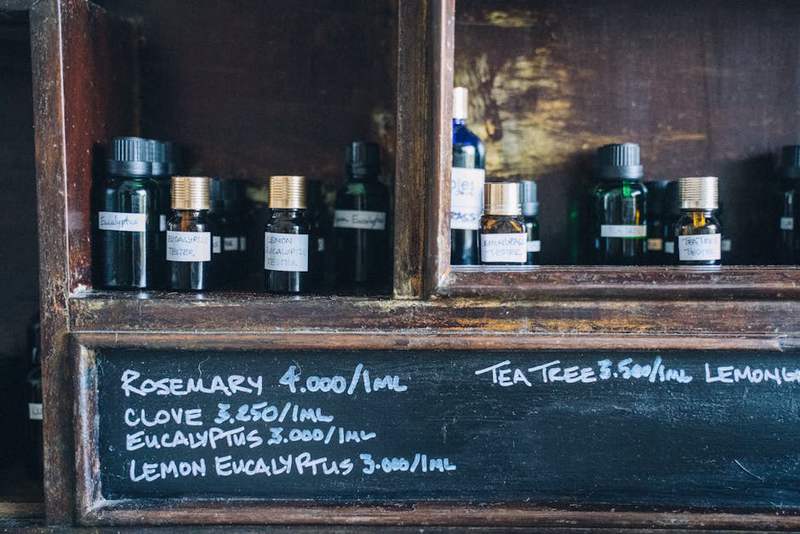 Eucalyptus
EUCALYPTUS
TESTER
LEMON
EUCALYPTUS
TESTER
Eucalyptus
TEA TREE
TESTER
ROSEMARY 4.000/1ML
CLOVE 3.250/1ML
EUCALYPTUS 3.000/1ML
LEMON EUCALYPTUS 3.000/1ML
TEA TREE 3.500/1ML LEMONG